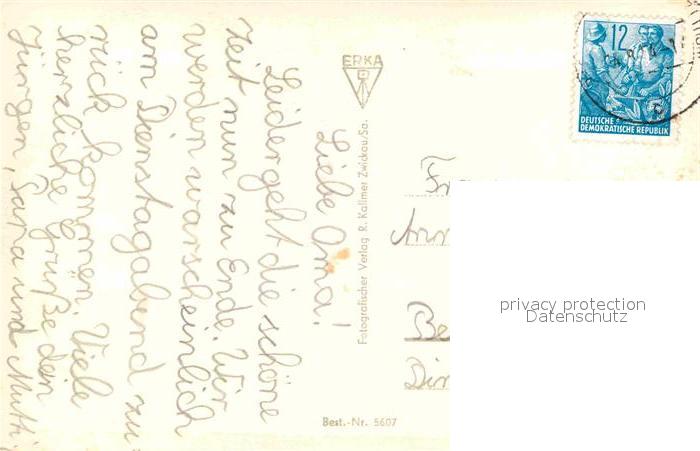 Liebe Oma!
Leider geht die schöne
Zeit nun zu Ende. Wir
werden warscheinlich
am Dienstagabend zu-
rück kommen. Viele
herzliche Grüße dein
Jürgen, Papa und Mutti
ERKA
Fotografischer Verlag R. Kallmer Zwickau/Sa.
Best.-Nr. 5607
12
DEUTSCHE
DEMOKRATISCHE REPUBLIK
Fr
Be
privacy protection
Datenschutz